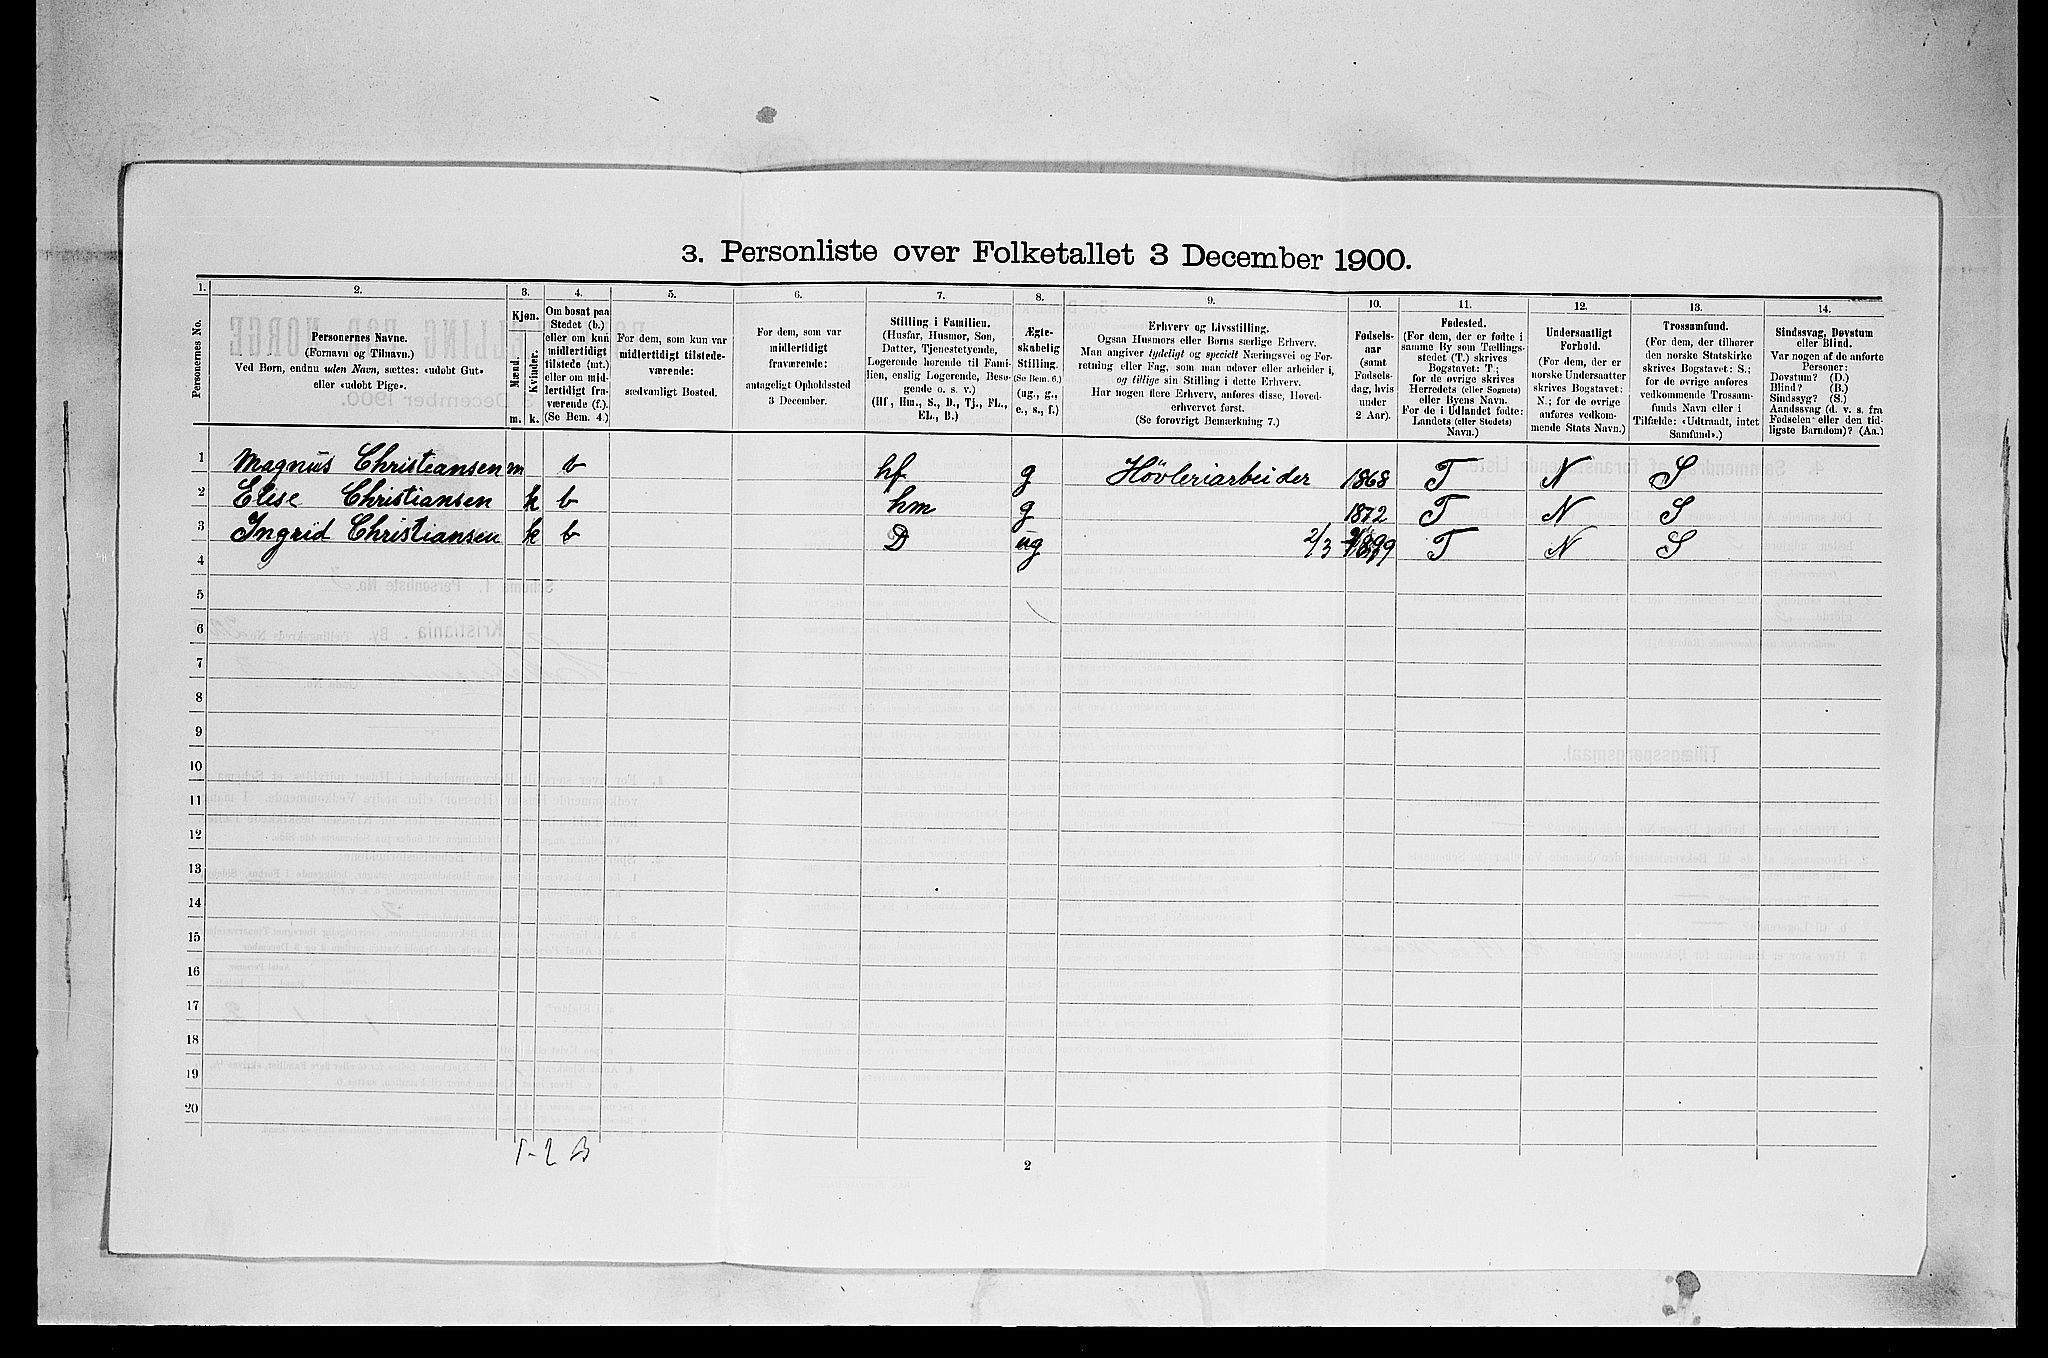 3. Personliste over Folketallet 3 December 1900.
1. 2. 3. 4. 5. 6. 7. 8. 9. 10. 11. 12. 13. 14.
Personernes No.
Personernes Navne.
(Fornavn og Tilnavn.)
Ved Børn, endnu uden Navn, sættes: «udøbt Gut»
eller «udøbt Pige».
Kjøn.
Mænd.
Kvinder.
m. k.
Om bosat paa
Stedet (b.)
eller om kun
midlertidigt
tilstede (mt.)
eller om mid-
lertidigt fra-
værende (f.).
(Se Bem. 4.)
For dem, som kun var
midlertidigt tilstede-
værende:
sædvanligt Bosted.
For dem, som var
midlertidigt
fraværende:
antageligt Opholdssted
3 December.
Stilling i Familien.
(Husfar, Husmor, Søn,
Datter, Tjenestetyende,
Logerende hørende til Fami-
lien, enslig Logerende, Besø-
gende o. s. v.)
(Hf, Hm., S., D., Tj., FL.,
EL., B.)
Ægte-
skabelig
Stilling.
(Se Bem. 6.)
(ug., g.,
e., s., f.)
Erhverv og Livsstilling.
Ogsaa Husmors eller Børns særlige Erhverv.
Man angiver tydeligt og specielt Næringsvei og For-
retning eller Fag, som man udøver eller arbeider i,
og tillige sin Stilling i dette Erhverv.
Har nogen flere Erhverv, anføres disse, Hoved-
erhvervet først.
(Se forøvrigt Bemærkning 7.)
Fødsels-
aar
(samt
Fødsels-
dag, hvis
under
2 Aar).
Fødested.
(For dem, der er fødte i
samme By som Tællings-
stedet (T.) skrives
Bogstavet: T.;
for de øvrige skrives
Herredets (eller Sognets)
eller Byens Navn.
For de i Udlandet fødte:
Landets (eller Stedets)
Navn.)
Undersaatligt
Forhold.
(For dem, der er
norske Undersaatter
skrives Bogstavet:
N.; for de øvrige
anføres vedkom-
mende Stats Navn.)
Trossamfund.
(For dem, der tilhører
den norske Statskirke
skrives Bogstavet: S.;
for de øvrige anføres
vedkommende Trossam-
funds Navn eller i
Tilfælde: «Udtraadt, intet
Samfund».)
Sindssvag, Døvstum
eller Blind.
Var nogen af de anførte
Personer:
Døvstum? (D.)
Blind? (B.)
Sindssyg? (S.)
Aandssvag (d. v. s. fra
Fødselen eller den tid-
ligste Barndom)? (Aa.)
1 Magnus Christiansen m b hf g Hövleriarbeider 1868 T N S
2 Elise Christiansen k b hm g 1872 T N S
3 Ingrid Christiansen k b D ug 2/3 1899 T N S
4
5
6
7
8
9
10
11
12
13
14
15
16
17
18
19
20
1-2 B
2